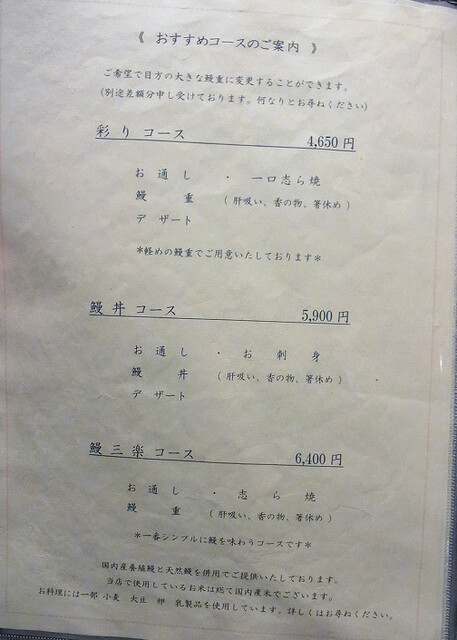 《 おすすめコースのご案内 》
ご希望で目方の大きな鰻重に変更することができます。
(別途差額分申し受けております。何なりとお尋ねください)
彩り コース 4,650 円
お 通 し ・ 一口志ら焼
鰻 重 ( 肝吸い、香の物、箸休め )
デ ザ ー ト
*軽めの鰻重でご用意いたしております*
鰻 丼 コース 5,900 円
お 通 し ・ お 刺 身
鰻 丼 ( 肝吸い、香の物、箸休め )
デ ザ ー ト
鰻 三 楽 コース 6,400 円
お 通 し ・ 志 ら 焼
鰻 重 ( 肝吸い、香の物、箸休め )
*一番シンプルに鰻を味わうコースです*
国内産養殖鰻と天然鰻を併用でご提供いたしております。
当店で使用しているお米は総て国内産米でございます。
お料理には一部 小麦 大豆 卵 乳製品を使用しています。詳しくはお尋ねください。